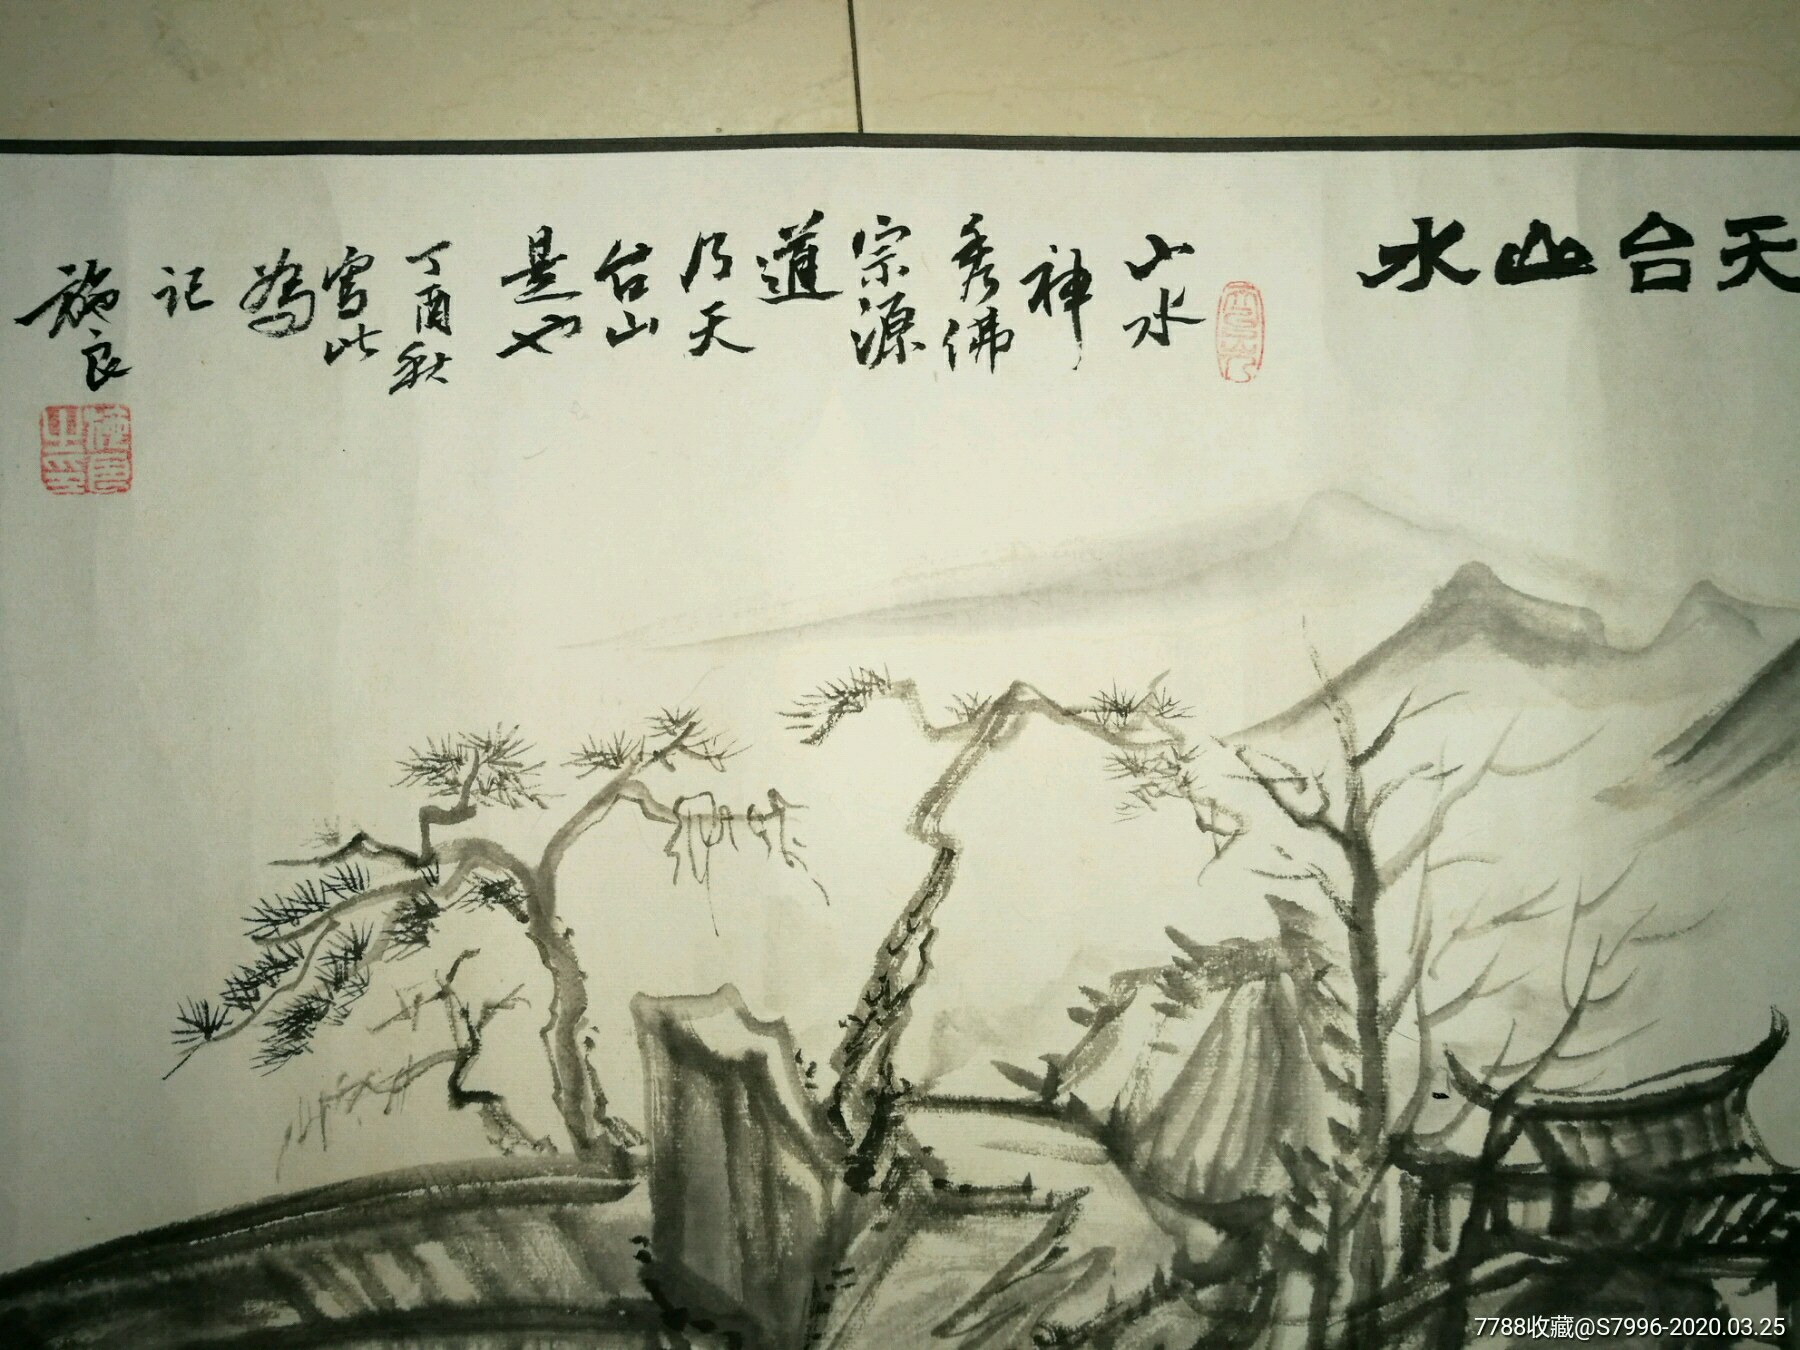 天台山水
山水
神
秀佛
宗源
道
乃天
台山
是也
丁酉秋
写此
為
记
施良
7788收藏@S7996-2020.03.25